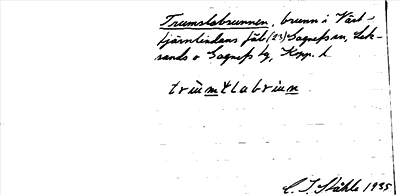 Trumslabrunnen, brunn i Väst-
tjärnlindans fäb (23) Gagnefs sn, Lek-
sands o Gagnefs tg, Kopp. l.
trumslabrunn
C. I. Ståhle 1935